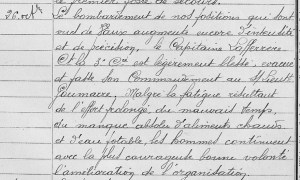 le premier poste de secours.
26 8bre Le bombardement de nos positions qui sont
sud de Pause augmente encore d'intensité
et de précision, le Capitaine Lafferrere
Ct la 5e Cie est légèrement blessé, évacué
et passe son Commandement au St Lieutt
Doumaire. Malgré la fatigue résultant
de l'effort prolongé, du mauvais temps,
du manque absolu d'aliments chauds
et d'eau potable les hommes continuent
avec la plus courageuse bonne volonté
l'amélioration de l'organisation.